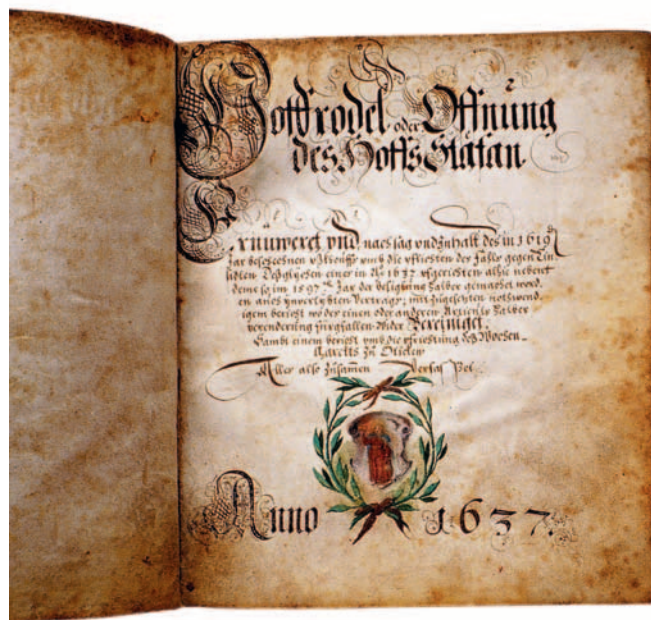 Hoffrodel oder Öffnung
des Hoffs Slätan
Ernüweret vnd nach sag vnd Inhalt des in 1619
Jar beschechnen vßkouffs vmb die der Fälle gegen
einer in A° 1637 vfgerichten alhie nebent
dem so im 1597 Jar der halber gemachet word
en anes ynverlybten Vertrags; mit zugesetzten notwend
igem bericht wo der einen oder anderen Articuls halber
verenderung fürgfallen Wider Bereiniget.
Sambt einem bericht vmb die des Wochen
marctts zu
Alles also zusamen Verfas set
Anno 1637.